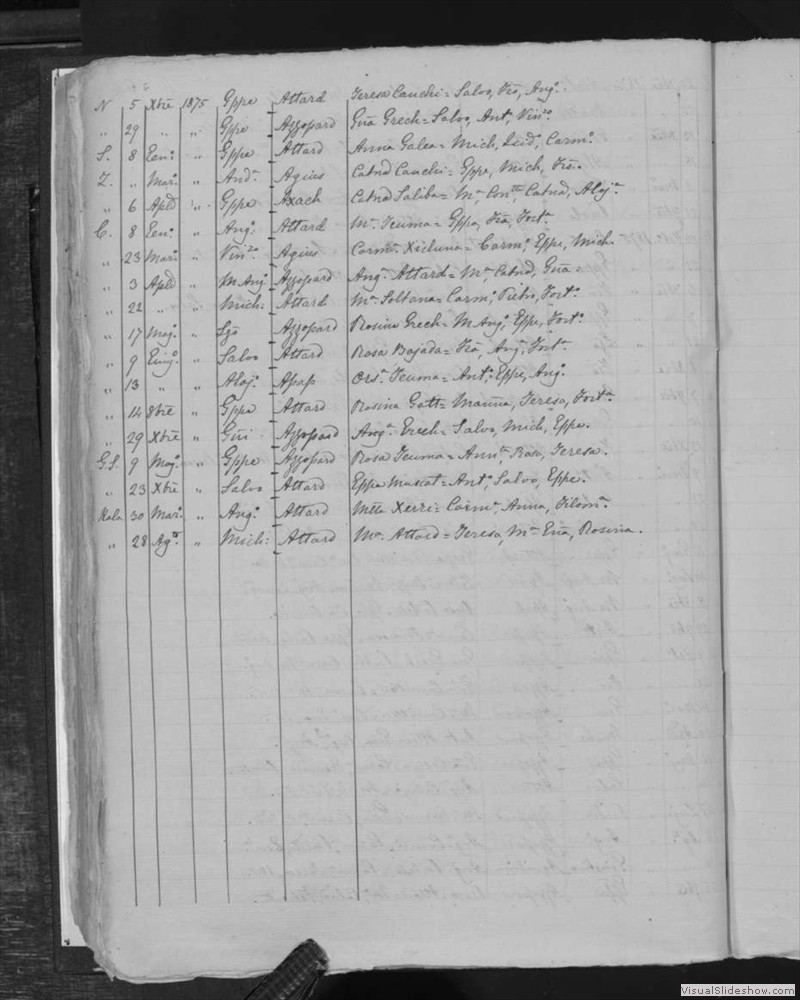 N 5 Xbre 1875 Gppe Attard Teresa Cauchi = Salvo, Fro, Ang.
" 29 " " Gppe Azzopard Gna Grech = Salvo, Ant, Vinzo
S. 8 Gen. " Gppe Attard Anna Galea = Mich, Carmo
Z. " Mar. " And. Agius Catna Cauchi = Gppe, Mich, Fro.
" 6 Aple " Gppe Axach Catna Saliba = Ma Contta, Catna, Aloja
C. 8 Gen. " Ang. Attard Ma Teuma = Gppa, Fra, Forta
" 23 Mar. " Vinzo Agius Carma Xicluna = Carmo Gppe, Mich.
" 3 Aple " M Ang. Azzopard Anga Attard = Ma, Catna, Gna =
" 22 " " Mich: Attard Ma Soltana = Carmo, Pietro, Forto
" 17 Mag. " Lzo Azzopard Rosina Grech = M Ang, Gppe, Forto
" 9 Giug. " Salvo Attard Rosa Bajada = Fra, Ang, Forta
" 13 " " Aloj. Apap Orsa Teuma = Anto, Gppe, Ang.
" 14 8bre " Gppe Attard Rosina Gatt = Marina, Teresa, Forta
" 29 Xbre " Gni Azzopard Anga Grech = Salvo, Mich, Gppe.
G.S. 9 Mag. " Gppe Azzopard Rosa Teuma = Annta, Rosa, Teresa.
" 23 Xbre " Salvo Attard Gppa Muscat = Anto, Salvo, Gppe.
Kala 30 Mar. " Ang. Attard Xerri = Carma, Anna, Filoma
" 28 Agto " Mich: Attard Ma Attard = Teresa, Ma Gna, Rosina.
VisualSlideshow.com